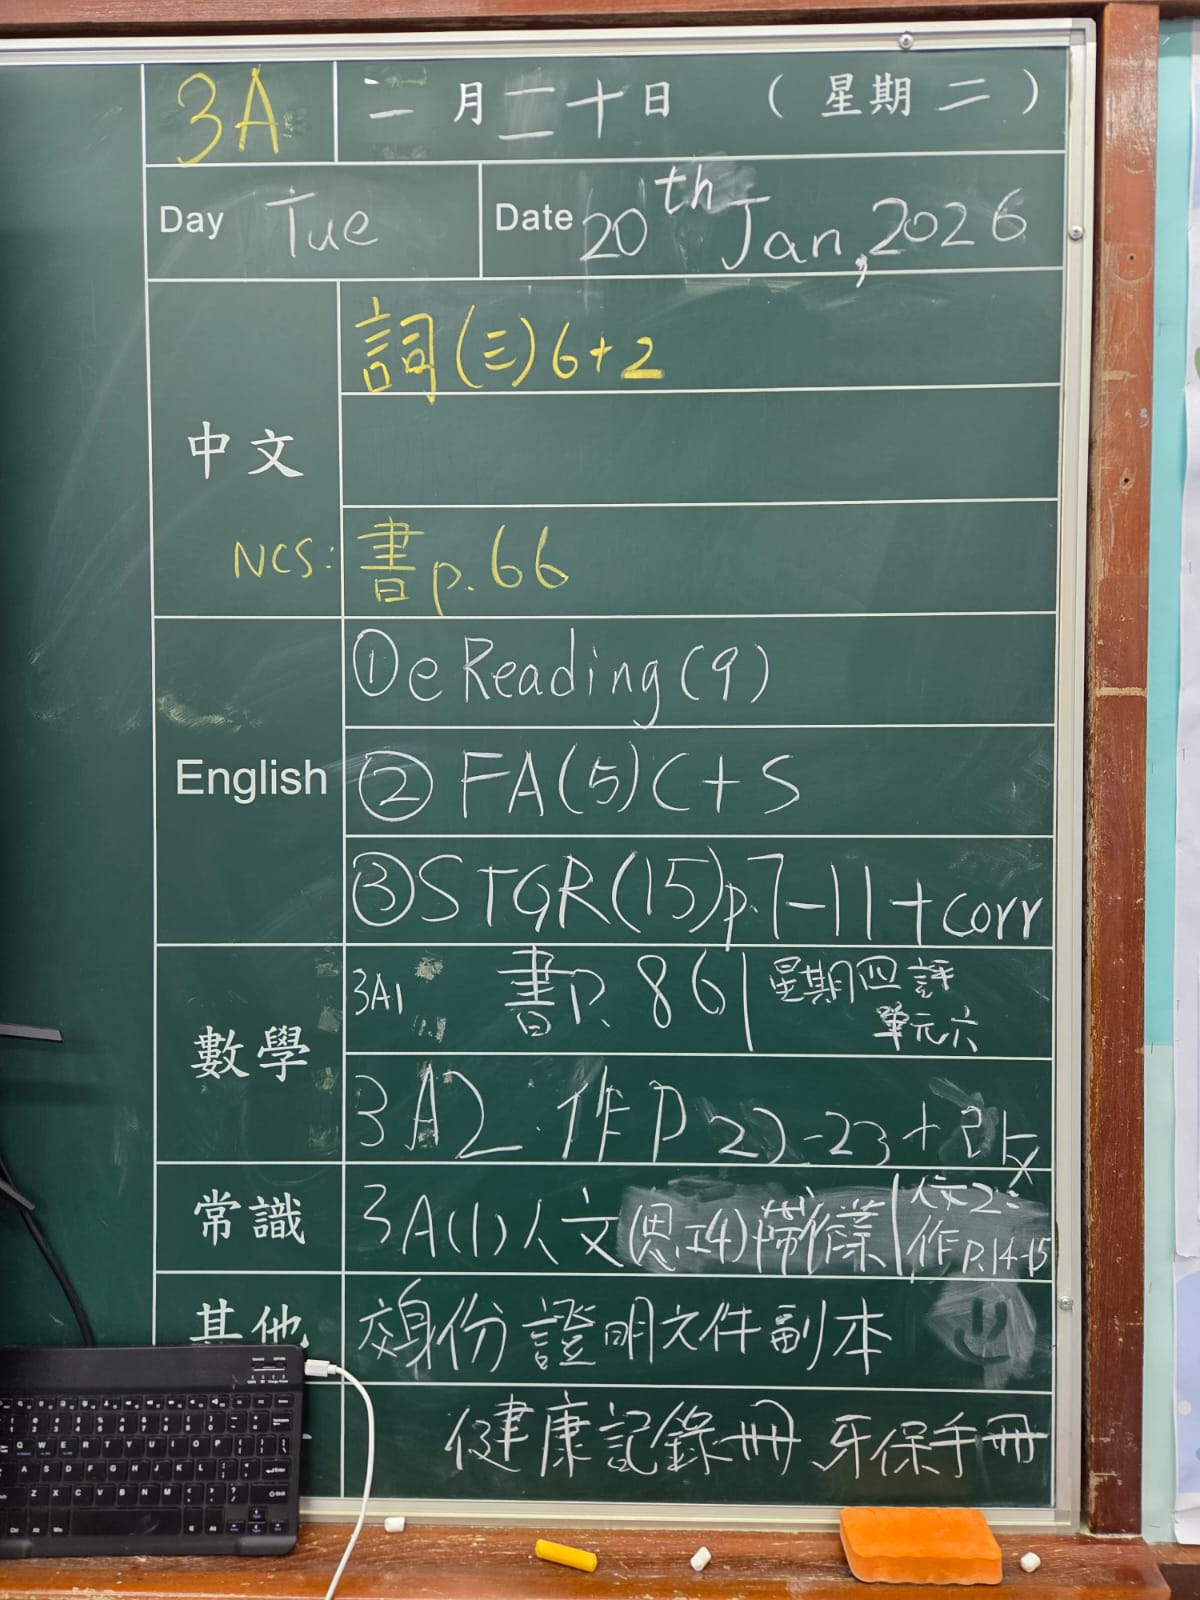 3A 一月二十日 (星期二)
Day Tue Date 20th Jan, 2026
詞(三)6+2
中文
NCS: 書p.66
① eReading(9)
English ② FA(5)C+S
③ STGR(15)p.7-11+corr
數學
3A1 書P.86 | 星期四評
單元六
3A2 作P22-23+改
常識 3A(1)人文(恩 工4)帶作業 | 人文2:
作p.14-15
其他 交身份證明文件副本
健康記錄冊 牙保手冊